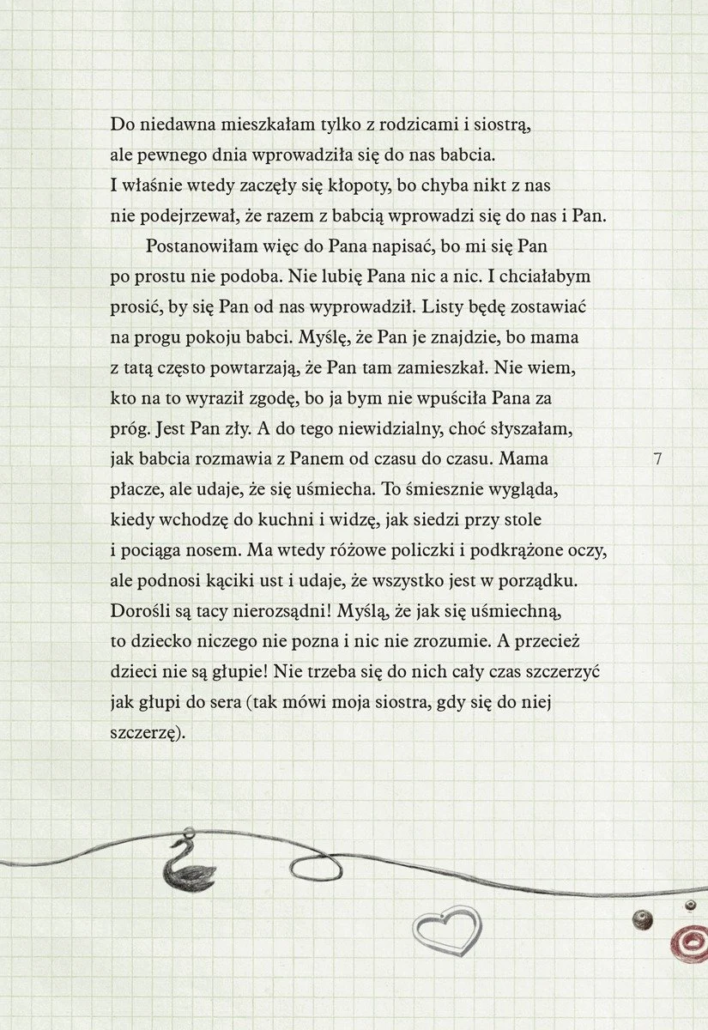 Do niedawna mieszkałam tylko z rodzicami i siostrą,
ale pewnego dnia wprowadziła się do nas babcia.
I właśnie wtedy zaczęły się kłopoty, bo chyba nikt z nas
nie podejrzewał, że razem z babcią wprowadzi się do nas i Pan.
Postanowiłam więc do Pana napisać, bo mi się Pan
po prostu nie podoba. Nie lubię Pana nic a nic. I chciałabym
prosić, by się Pan od nas wyprowadził. Listy będę zostawiać
na progu pokoju babci. Myślę, że Pan je znajdzie, bo mama
z tatą często powtarzają, że Pan tam zamieszkał. Nie wiem,
kto na to wyraził zgodę, bo ja bym nie wpuściła Pana za
próg. Jest Pan zły. A do tego niewidzialny, choć słyszałam,
jak babcia rozmawia z Panem od czasu do czasu. Mama
płacze, ale udaje, że się uśmiecha. To śmiesznie wygląda,
kiedy wchodzę do kuchni i widzę, jak siedzi przy stole
i pociąga nosem. Ma wtedy różowe policzki i podkrążone oczy,
ale podnosi kąciki ust i udaje, że wszystko jest w porządku.
Dorośli są tacy nierozsądni! Myślą, że jak się uśmiechną,
to dziecko niczego nie pozna i nic nie zrozumie. A przecież
dzieci nie są głupie! Nie trzeba się do nich cały czas szczerzyć
jak głupi do sera (tak mówi moja siostra, gdy się do niej
szczerzę).
7